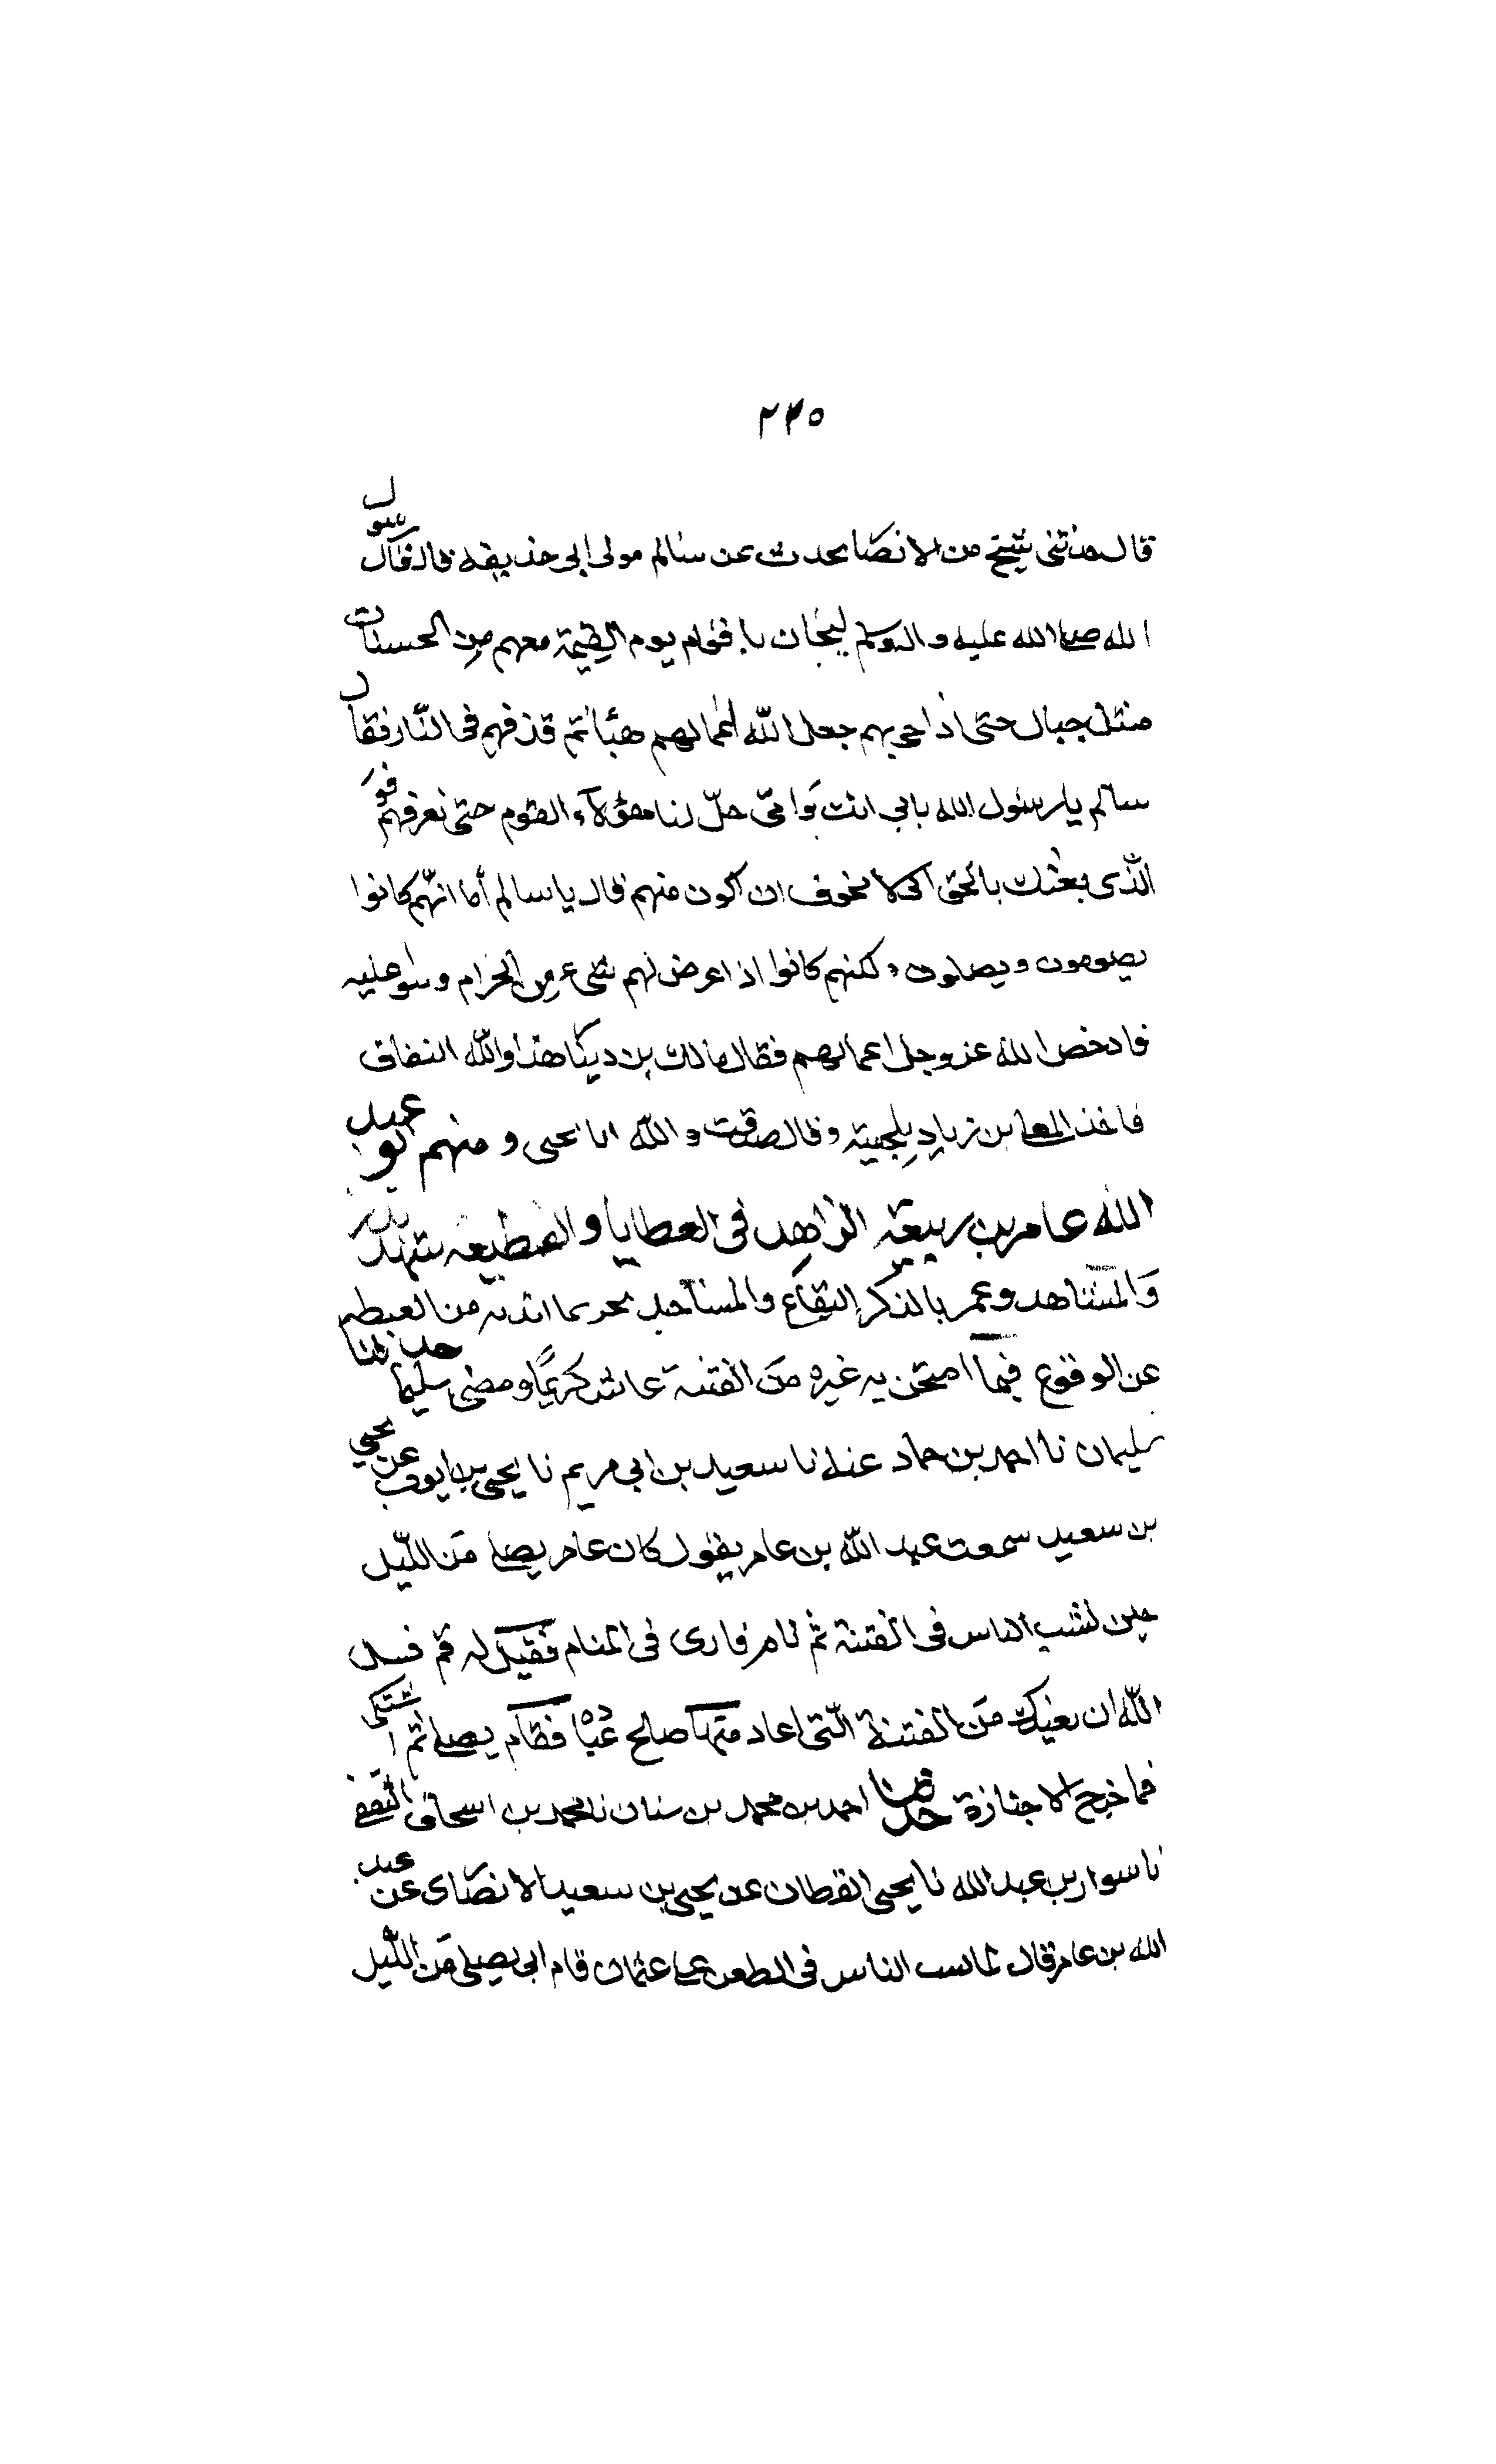 ٢٣٥
قال حدثنى شيخ من الانصار يحدث عن سالم مولى ابى حذيفة قال قال رسول
الله صلى الله عليه واله وسلم ليجان باقوام يوم القيمة معهم من الحسنات
مثل جبال حتى اذا جئ بهم جعل الله اعمالهم هبأ ثم قذفهم فى النار فقال
سالم يا رسول الله بابي انت وامى حلّ لنا هؤلآء القوم حتى نعرفهم فو
الذى بعثك بالحق انى لا تخوف ان اكون منهم قال يا سالم أما انهم كانوا
يصومون ويصلون ولكنهم كانوا اذا عرض لهم شئ من الحرام وثبوا عليه
فادحض الله عز وجل اعمالهم فقال مالك بن دينار هذا والله النفاق
فاخذ المعلى بن زياد بلحيته وقال صدقت والله ابا يحيى ومنهم ابو عبد
الله عامر بن ربيعة الزاهد فى العطايا والقطيعه شهد بدر
والمشاهد وعمر بالذكر البقاع والمساجد
عن الوقوع فيما امتحن به غيره من الفتنة عاش كريما ومضى سليما حدثنا
سليمان نا احمد بن حماد نا سعيد بن ابى مريم نا يحيى بن ايوب عن يحيى
بن سعيد سمعت عبد الله بن عامر يقول كان عامر يصلى من الليل
حين نشب الناس فى الفتنة ثم نام فارى فى المنام فقيل له قم فسل
الله ان يعيذك من الفتنة التى اعاذ منها صالح عباده فقام يصلى ثم اشتكى
فما خرج الا جنازة حدثنا احمد بن محمد بن سنان نا محمد بن اسحاق الثقفى
نا سوار بن عبد الله نا يحيى القطان عن يحيى بن سعيد الانصارى عن عبد
الله بن عامر قال لما نشب الناس فى الطعن على عثمان قام ابى يصلى من الليل